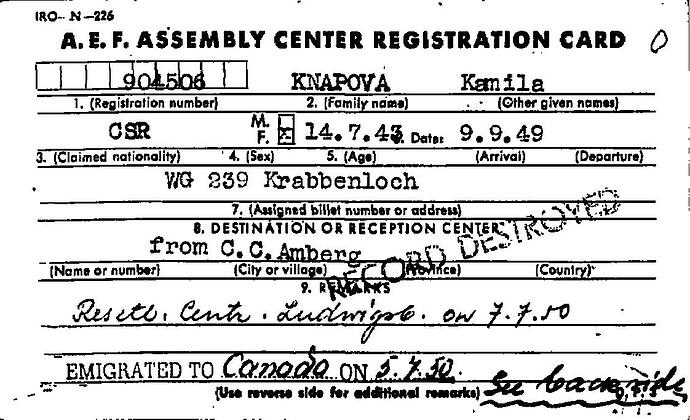 IRO- N -226
A. E. F. ASSEMBLY CENTER REGISTRATION CARD O
904506 KNAPOVA Kamila
1. (Registration number) 2. (Family name) (Other given names)
CSR M. F. x 14.7.43 6. Date: 9.9.49
3. (Claimed nationality) 4. (Sex) 5. (Age) (Arrival) (Departure)
WG 239 Krabbenloch
7. (Assigned billet number or address)
8. DESTINATION OR RECEPTION CENTER
from C.C.Amberg
RECORD DESTROYED
(Name or number) (City or village) (Province) (Country)
9. REMARKS
Resettl. Centr. Ludwigsb. on 7.7.50
EMIGRATED TO Canada ON 5.7.50.
(Use reverse side for additional remarks) See backside